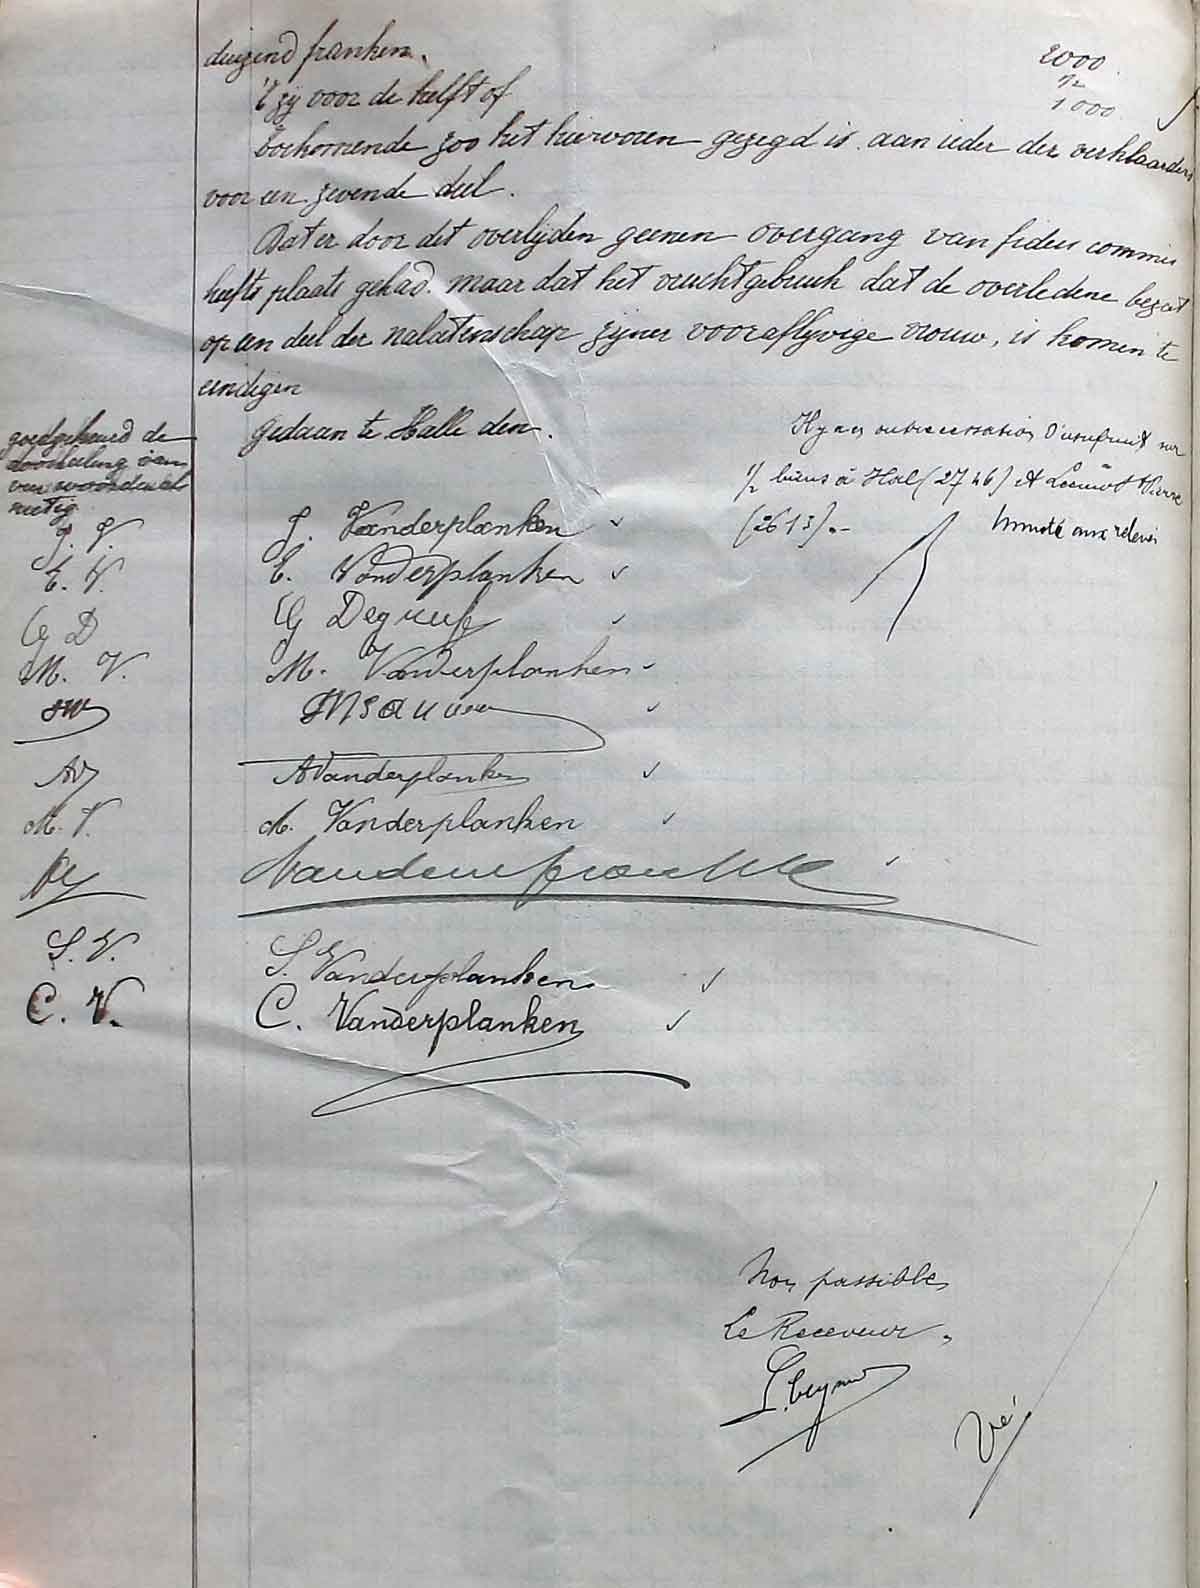 duizend franken. 2000
't zij voor de helft of 1/2
1000
toekomende zoo het hiervoren gezegd is aan ieder der verklaarders
voor een zevende deel.
Dat er door dit overlijden geenen overgang van fidei commis
heeft plaats gehad. maar dat het vruchtgebruik dat de overledene bezat
op een deel der nalatenschap zijner vooraflijvige vrouw, is komen te
eindigen
Gedaan te Halle den.
goedgekeurd de
doorhaling van
een woord
nietig
Il y a eu cessation d'usufruit sur
1/2 biens à Hal (2746) et Leeuw St Pierre
(2613).-
aux relevés
J. V. J. Vanderplanken
E. V. E. Vanderplanken
G D G Degreef
M. V. M. Vanderplanken
JW
AV AVanderplanken
M. V. M. Vanderplanken
S. V. S. Vanderplanken
C. V. C. Vanderplanken
Non passible
Le Receveur.